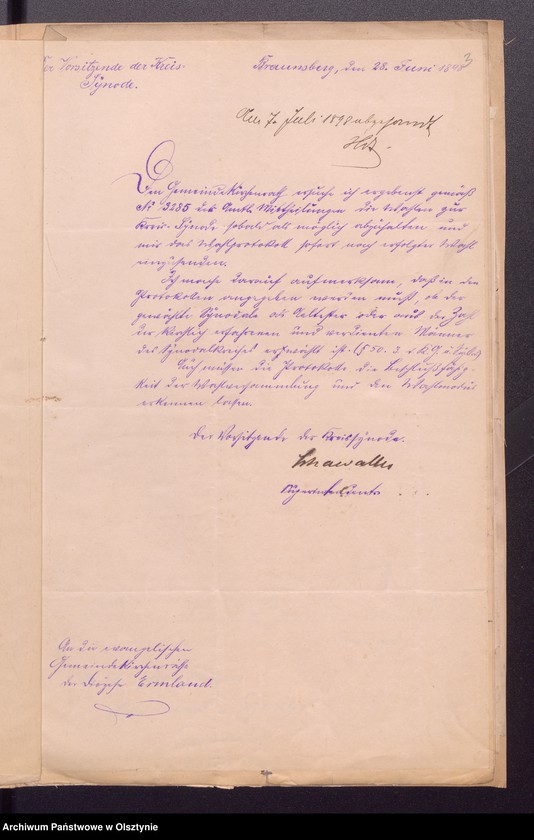 Der Vorsitzende der Kreis-
Synode.
Braunsberg, den 28. Juni 1898
3
Am 7. Juli 1898 abgesandt
Den Gemeindekirchenrath ersuche ich ergebenst gemäß
№ 3285 der Amtl. Mittheilungen die Wahlen zur
Kreis-Synode sobald als möglich abzuhalten und
mir das Wahlprotokoll sofort nach erfolgter Wahl
einzusenden.
Ich mache darauf aufmerksam, daß in den
Protokollen angegeben werden muß, ob der
gewählte Synodale als Aeltester oder aus der Zahl
der kirchlich erfahrenen und verdienten Männer
des Synodalkreises erwählt ist (§ 50. 3
Auch müssen die Protokolle die Beschlußfähig-
keit der Wahlversammlung und den Wahlmodus
erkennen lassen.
Der Vorsitzende der Kreissynode.
Superintendent
An die evangelischen
Gemeindekirchenräthe
der Diözese Ermland.
Archiwum Państwowe w Olsztynie